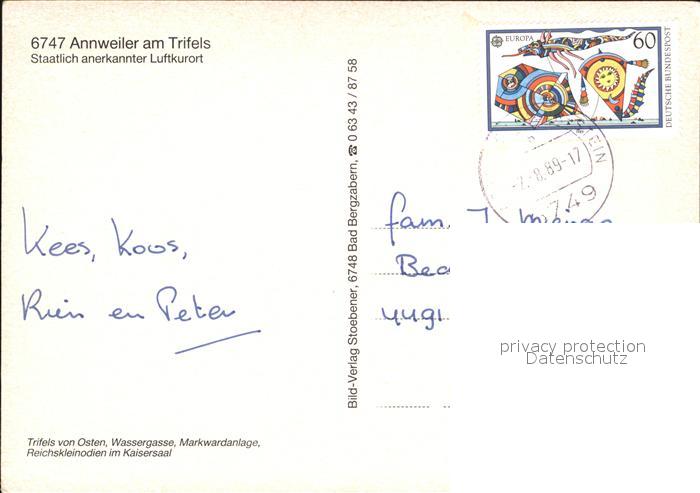 6747 Annweiler am Trifels
Staatlich anerkannter Luftkurort
EUROPA
60
DEUTSCHE BUNDESPOST
STEIN
-2.-8.89-17
749
Kees, Koos,
Rien en Peter
Bild-Verlag Stoebener, 6748 Bad Bergzabern, ☎ 0 63 43 / 87 58
fam. J.
4491
privacy protection
Datenschutz
Trifels von Osten, Wassergasse, Markwardanlage,
Reichskleinodien im Kaisersaal